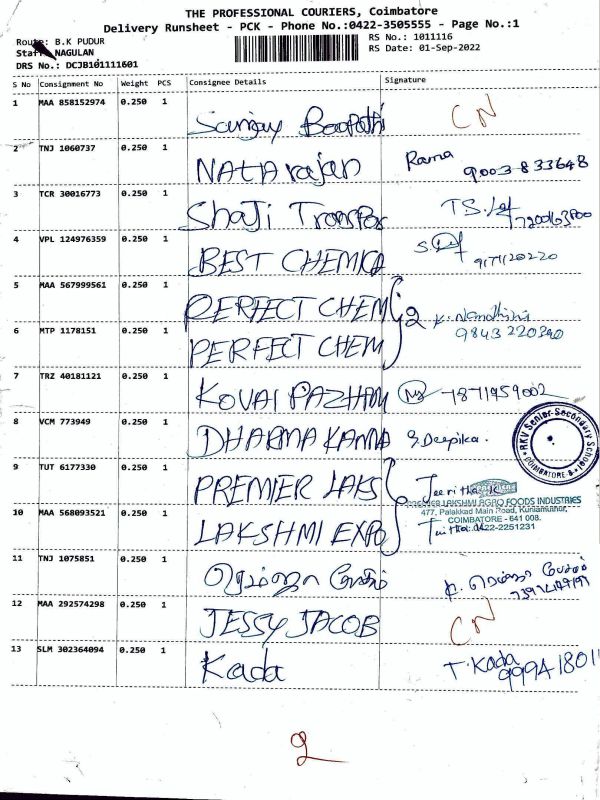 THE PROFESSIONAL COURIERS, Coimbatore
Delivery Runsheet - PCK - Phone No.:0422-3505555 - Page No.:1
Route: B.K PUDUR
Staff NAGULAN
DRS No.: DCJB101111601
RS No.: 1011116
RS Date: 01-Sep-2022
S No Consignment No Weight PCS Consignee Details Signature
1 MAA 858152974 0.250 1 Sanjay CN
2 TNJ 1060737 0.250 1 NATArajan Rama 90038 33648
3 TCR 30016773 0.250 1 Shaji Transpor
4 VPL 124976359 0.250 1 BEST CHEMICA
5 MAA 567999561 0.250 1 PERFECT CHEM 2 K. Nandhini
6 MTP 1178151 0.250 1 PERFECT CHEM 9843 220390
7 TRZ 40181121 0.250 1 KOVAI PAZHAM 7871959002
8 VCM 773949 0.250 1 DHARMA KANNA S. Deepika.
RKV Senior Secondary School
COIMBATORE-8
9 TUT 6177330 0.250 1 PREMIER LAKS
PREMIER LAKSHMI AGRO FOODS INDUSTRIES
477, Palakkad Main Road, Kuniamuthur,
COIMBATORE - 641 008.
0422-2251231
10 MAA 568093521 0.250 1 LAKSHMI EXPO
11 TNJ 1075851 0.250 1
12 MAA 292574298 0.250 1 JESSY JACOB CN
13 SLM 302364094 0.250 1 Kada T. Kada 99941801
2